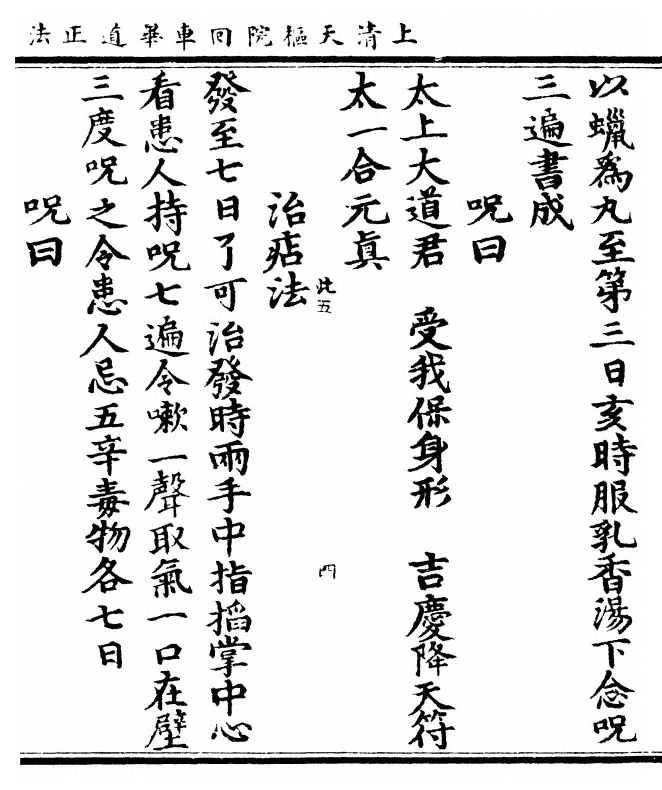 上清天樞院回車畢道正法
以蠟爲丸至第三日亥時服乳香湯下念呪
三遍書成
呪曰
太上大道君　受我保身形　吉慶降天符
太一合元眞
此五
四
治痁法
發至七日了可治發時兩手中指掐掌中心
看患人持呪七遍令嗽一聲取氣一口在壁
三度呪之令患人忌五辛毒物各七日
呪曰